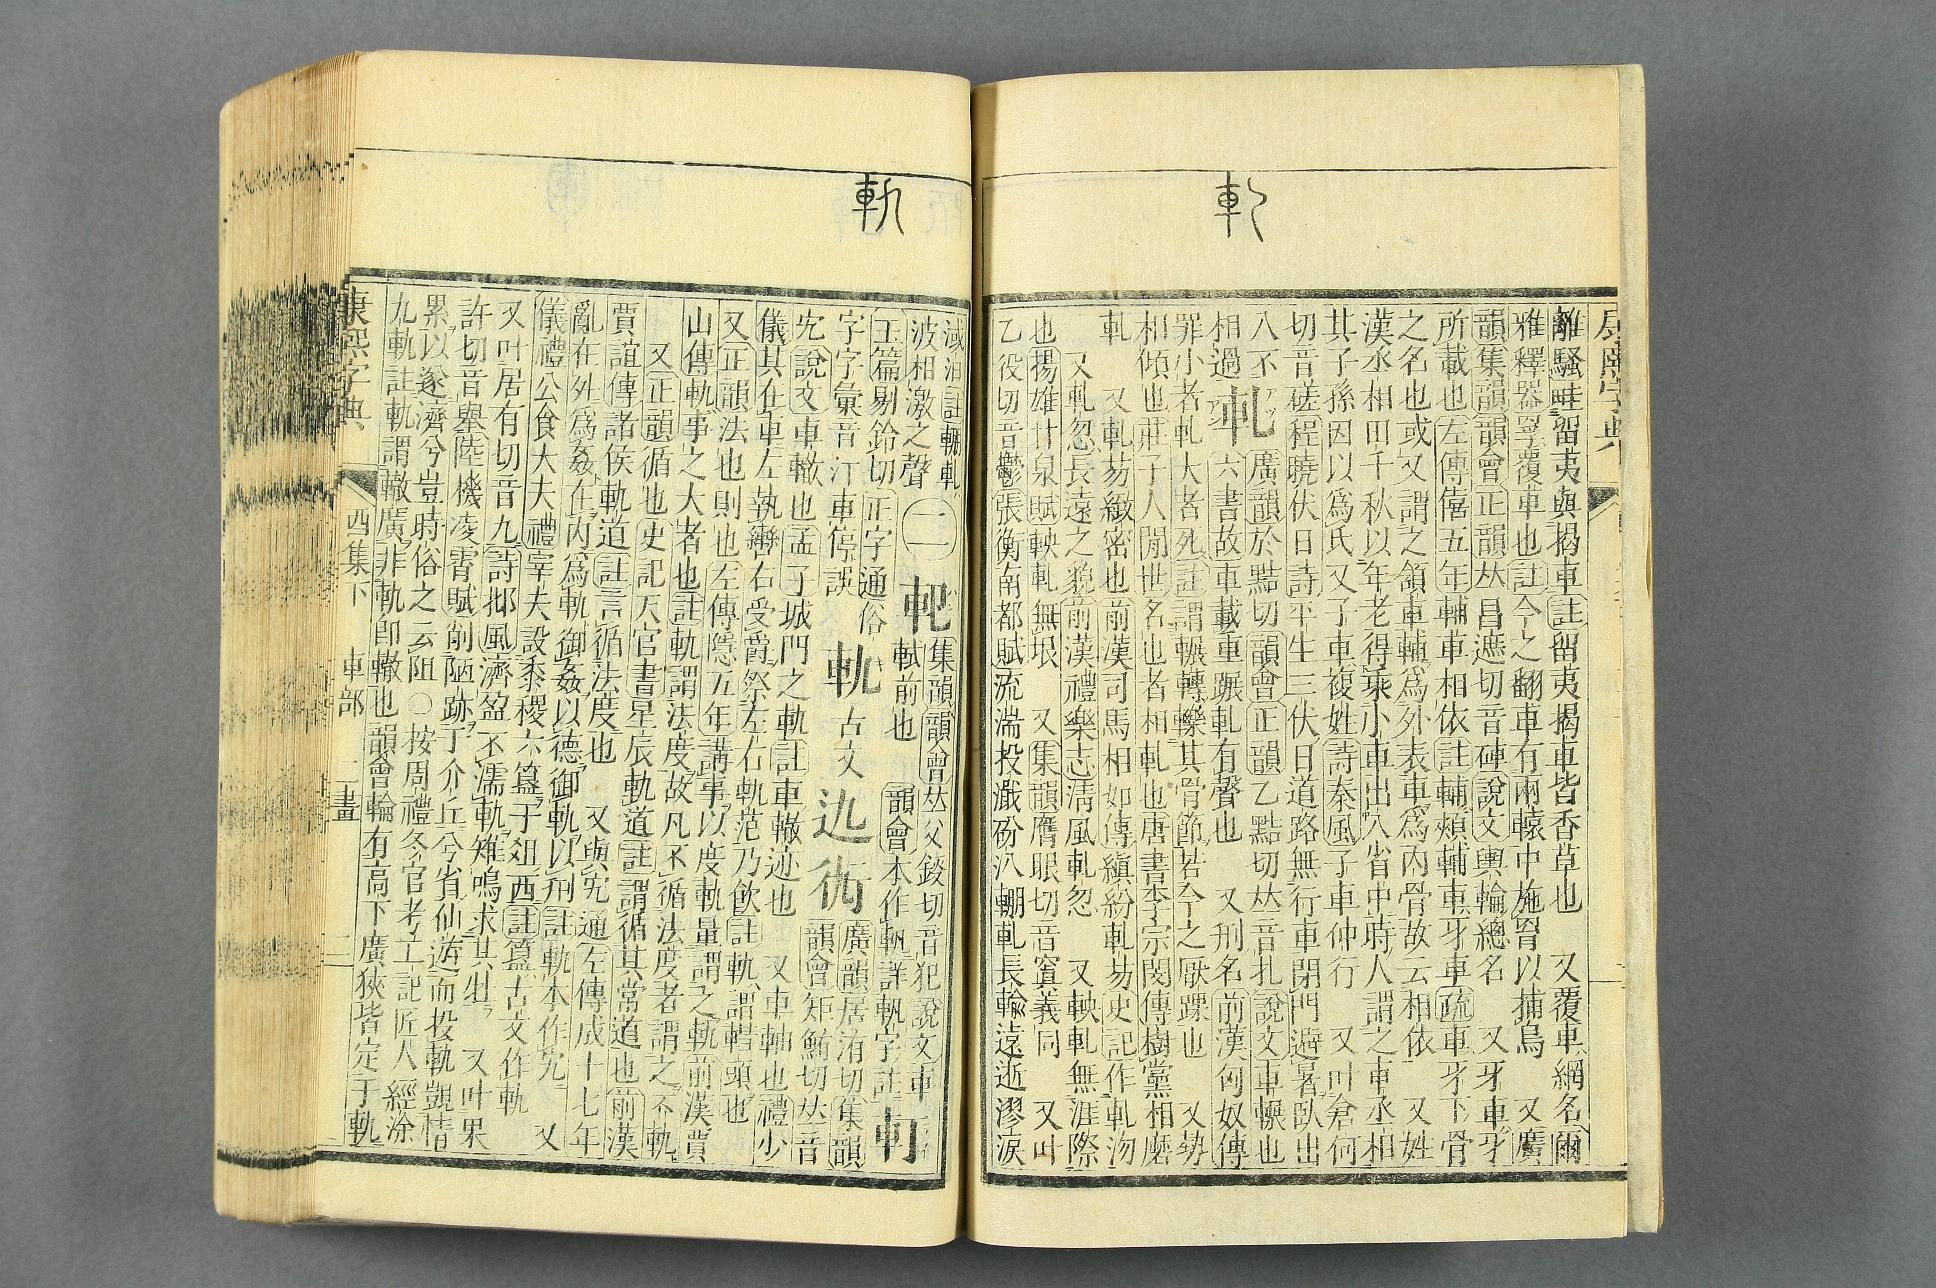 康熙字典
軋
離騷畦留夷與揭車註留夷揭車皆香草也　又覆車網名爾
雅釋器罦覆車也註今之翻車有兩轅中施罥以捕鳥　又廣
韻集韻韻會正韻𠀤昌遮切音硨說文輿輪總名　又牙車牙
所載也左傳僖五年輔車相依註輔頰輔車牙車疏車牙下骨
之名也或又謂之頷車輔爲外表車爲內骨故云相依　又姓
漢丞相田千秋以年老得乘小車出入省中時人謂之車丞相
其子孫因以爲氏又子車複姓詩秦風子車仲行　又叶倉何
切音磋程曉伏日詩平生三伏日道路無行車閉門避暑臥出
八不
相過
軋
廣韻於黠切韻會正韻乙黠切𠀤音扎說文車輾也
六書故車載重蹍軋有聲也　又刑名前漢匈奴傳
罪小者軋大者死註謂輾轉轢其骨節若今之厭踝也　又勢
相傾也莊子人閒世名也者相軋也唐書李宗閔傳樹黨相磨
軋　又軋芴緻密也前漢司馬相如傳縝紛軋芴史記作軋沕
又軋忽長遠之貌前漢禮樂志淸風軋忽　又軮軋無涯際
也揚雄甘泉賦軮軋無垠　又集韻膺眼切音䆘義同　又叶
乙役切音鬱張衡南都賦流湍投濈砏汃輣軋長輸遠逝漻淚
軌
淢汩註輣軋
波相激之聲
二
軓
集韻韻會𠀤父錽切音犯說文車
軾前也　韻會本作𨊠詳𨊠字註
軒
玉篇剔鈴切　正字通俗
字字彙音汀車𠊓誤
軌
古文
𨒋
𧗪
廣韻居洧切集韻
韻會矩鮪切𠀤音
宄說文車轍也孟子城門之軌註車轍迹也　又車軸也禮少
儀其在車左執轡右受爵祭左右軌范乃飮註軌謂轊頭也
又正韻法也則也左傳隱五年講事以度軌量謂之軌前漢賈
山傳軌事之大者也註軌謂法度故凡不循法度者謂之不軌
又正韻循也史記天官書星辰軌道註謂循其常道也前漢
賈誼傳諸侯軌道註言循法度也　又與宄通左傳成十七年
亂在外爲姦在內爲軌御姦以德御軌以刑註軌本作宄　又
儀禮公食大夫禮宰夫設黍稷六簋于俎西註簋古文作軌
又叶居有切音九詩邶風濟盈不濡軌雉鳴求其牡　又叶果
許切音舉陸機凌霄賦削陋跡于介丘兮省仙遊而投軌覬情
累以遂濟兮豈時俗之云阻○按周禮冬官考工記匠人經涂
九軌註軌謂轍廣非軌卽轍也韻會輪有高下廣狹皆定于軌
康熙字典　酉集下　車部　二畫　二